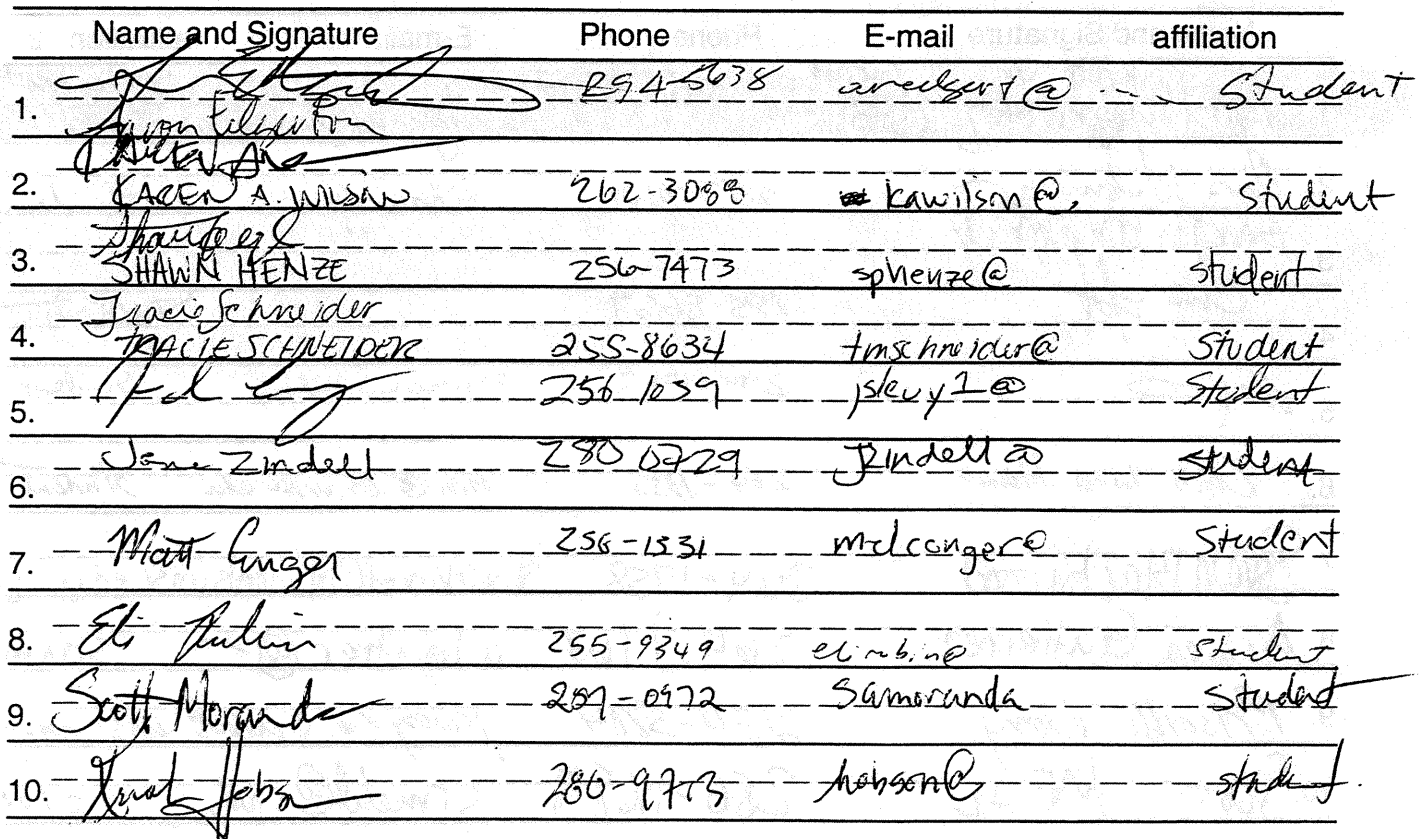 Name and Signature Phone E-mail affiliation
294-5638 aredgert@ Student
1.
2. KAREN A. WILSON 262-3088 kawilson@, Student
3. SHAWN HENZE 256-7473 sphenze@ student
Tracie Schneider
4. TRACIE SCHNEIDER 255-8634 tmschneider@ Student
5. 256 1039 jslevy1@ Student
6. Jane Zindell 280 0729 jzindell@ student
7. Matt Conger 256-1331 mdconger@ Student
8. Eli Rubin 255-9349 elirubin@ Student
9. Scott Moranda 289-0972 Samoranda Student
10. Hobson 286-9773 hobson@ student.